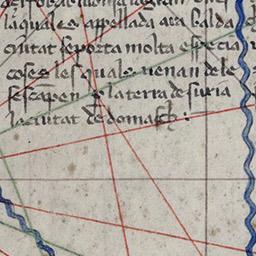 la qual es appellada ara baldach
ciutat se porta molta especia
coses les quals venan de les
se scapen per la terra de suria
la ciutat de domasch: